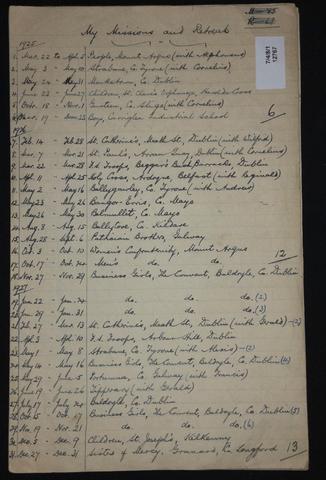 My Missions and Retreats
7/4/8/1
12767
1925
1. Mar. 22 to Apl. 5 People, Mount Argus (with Alphonsus)
2. May 3 - May 10 Strabane, Co. Tyrone (with Cornelius)
3. May 24 - May 31 Monkstown, Co. Dublin
4. June 22 - June 27 Children, St. Clare's Orphanage, Harold's Cross
5. Oct. 18 - Nov. 1 Co. Sligo (with Cornelius)
6. Dec. 19 - Dec. 25 Boys, Carriglea Industrial School
6
1926
7. Feb. 14 - Feb. 28 St. Catherine's, Meath St., Dublin (with Wilfrid)
8. Mar. 7 - Mar. 21 St. Paul's, Arran Quay, Dublin (with Cornelius)
9. Mar. 22 - Mar. 28 F.S. Troops, Beggar's Bush Barracks, Dublin
10. Apl. 11 - Apl. 25 Holy Cross, Ardoyne, Belfast (with Reginald)
11. May 2 - May 16 Ballygawley, Co. Tyrone (with Andrew)
12. May 23 - May 26 Bangor-Erris, Co. Mayo
13. May 26 - May 30 Belmullet, Co. Mayo
14. Aug. 8 - Aug. 15 Ballytore, Co. Kildare
15. Aug. 28 - Sept. 6 Patrician Brothers, Galway
16. Oct. 3 - Oct. 10 Women's Confraternity, Mount Argus
17. Oct. 17 - Oct. 24 Men's do. do.
12
18. Nov. 27 - Nov. 29 Business Girls, The Convent, Baldoyle, Co. Dublin
1927
19. Jan. 22 - Jan. 24 do. do. do. (2)
20. Jan. 29 - Jan. 31 do. do. do. (3)
21. Feb. 27 - Mar. 13 St. Catherine's, Meath St., Dublin (with Gerald) - (2)
22. Apl. 3 - Apl. 10 F.S. Troops, Arbour Hill, Dublin
23. May 1 - May 8 Strabane, Co. Tyrone (with Alexis) - (2)
24. May 14 - May 16 Business Girls, The Convent, Baldoyle, Co. Dublin (4)
25. May 29 - June 5 Co. Galway (with Francis)
26. June 19 - June 26 Tipperary (with Gerald)
27. July 17 - July 24 Baldoyle, Co. Dublin
28. Oct. 15 - Oct. 17 Business Girls, The Convent, Baldoyle, Co. Dublin (5)
29. Nov. 19 - Nov. 21 do. do. do. (6)
30. Dec. 5 - Dec. 9 Children, St. Joseph's, Kilkenny
31. Dec. 27 - Dec. 31 Sisters of Mercy, Granard, Co. Longford
13